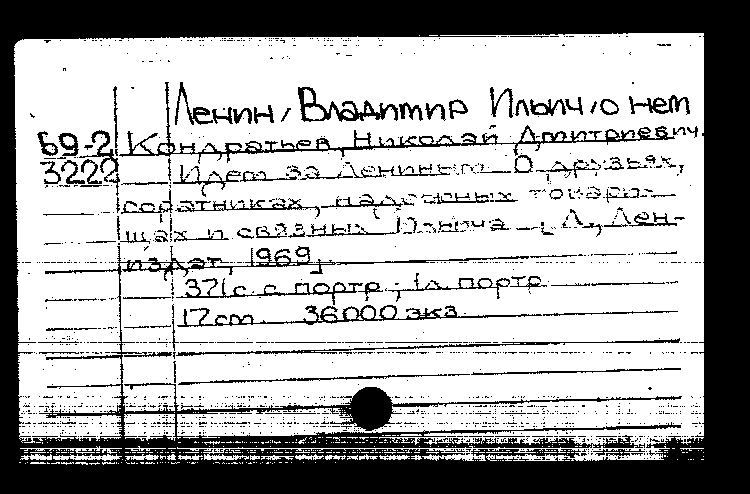 Ленин, Владимир Ильич, о нем
69-2 Кондратьев, Николай Дмитриевич.
3222 Идем за Лениным. О друзьях,
соратниках, надежных товари-
щах и связных Ильича. [Л., Лен-
издат, 1969]
371 с. с портр.; 1 л. портр.
17 cm 36000 экз.